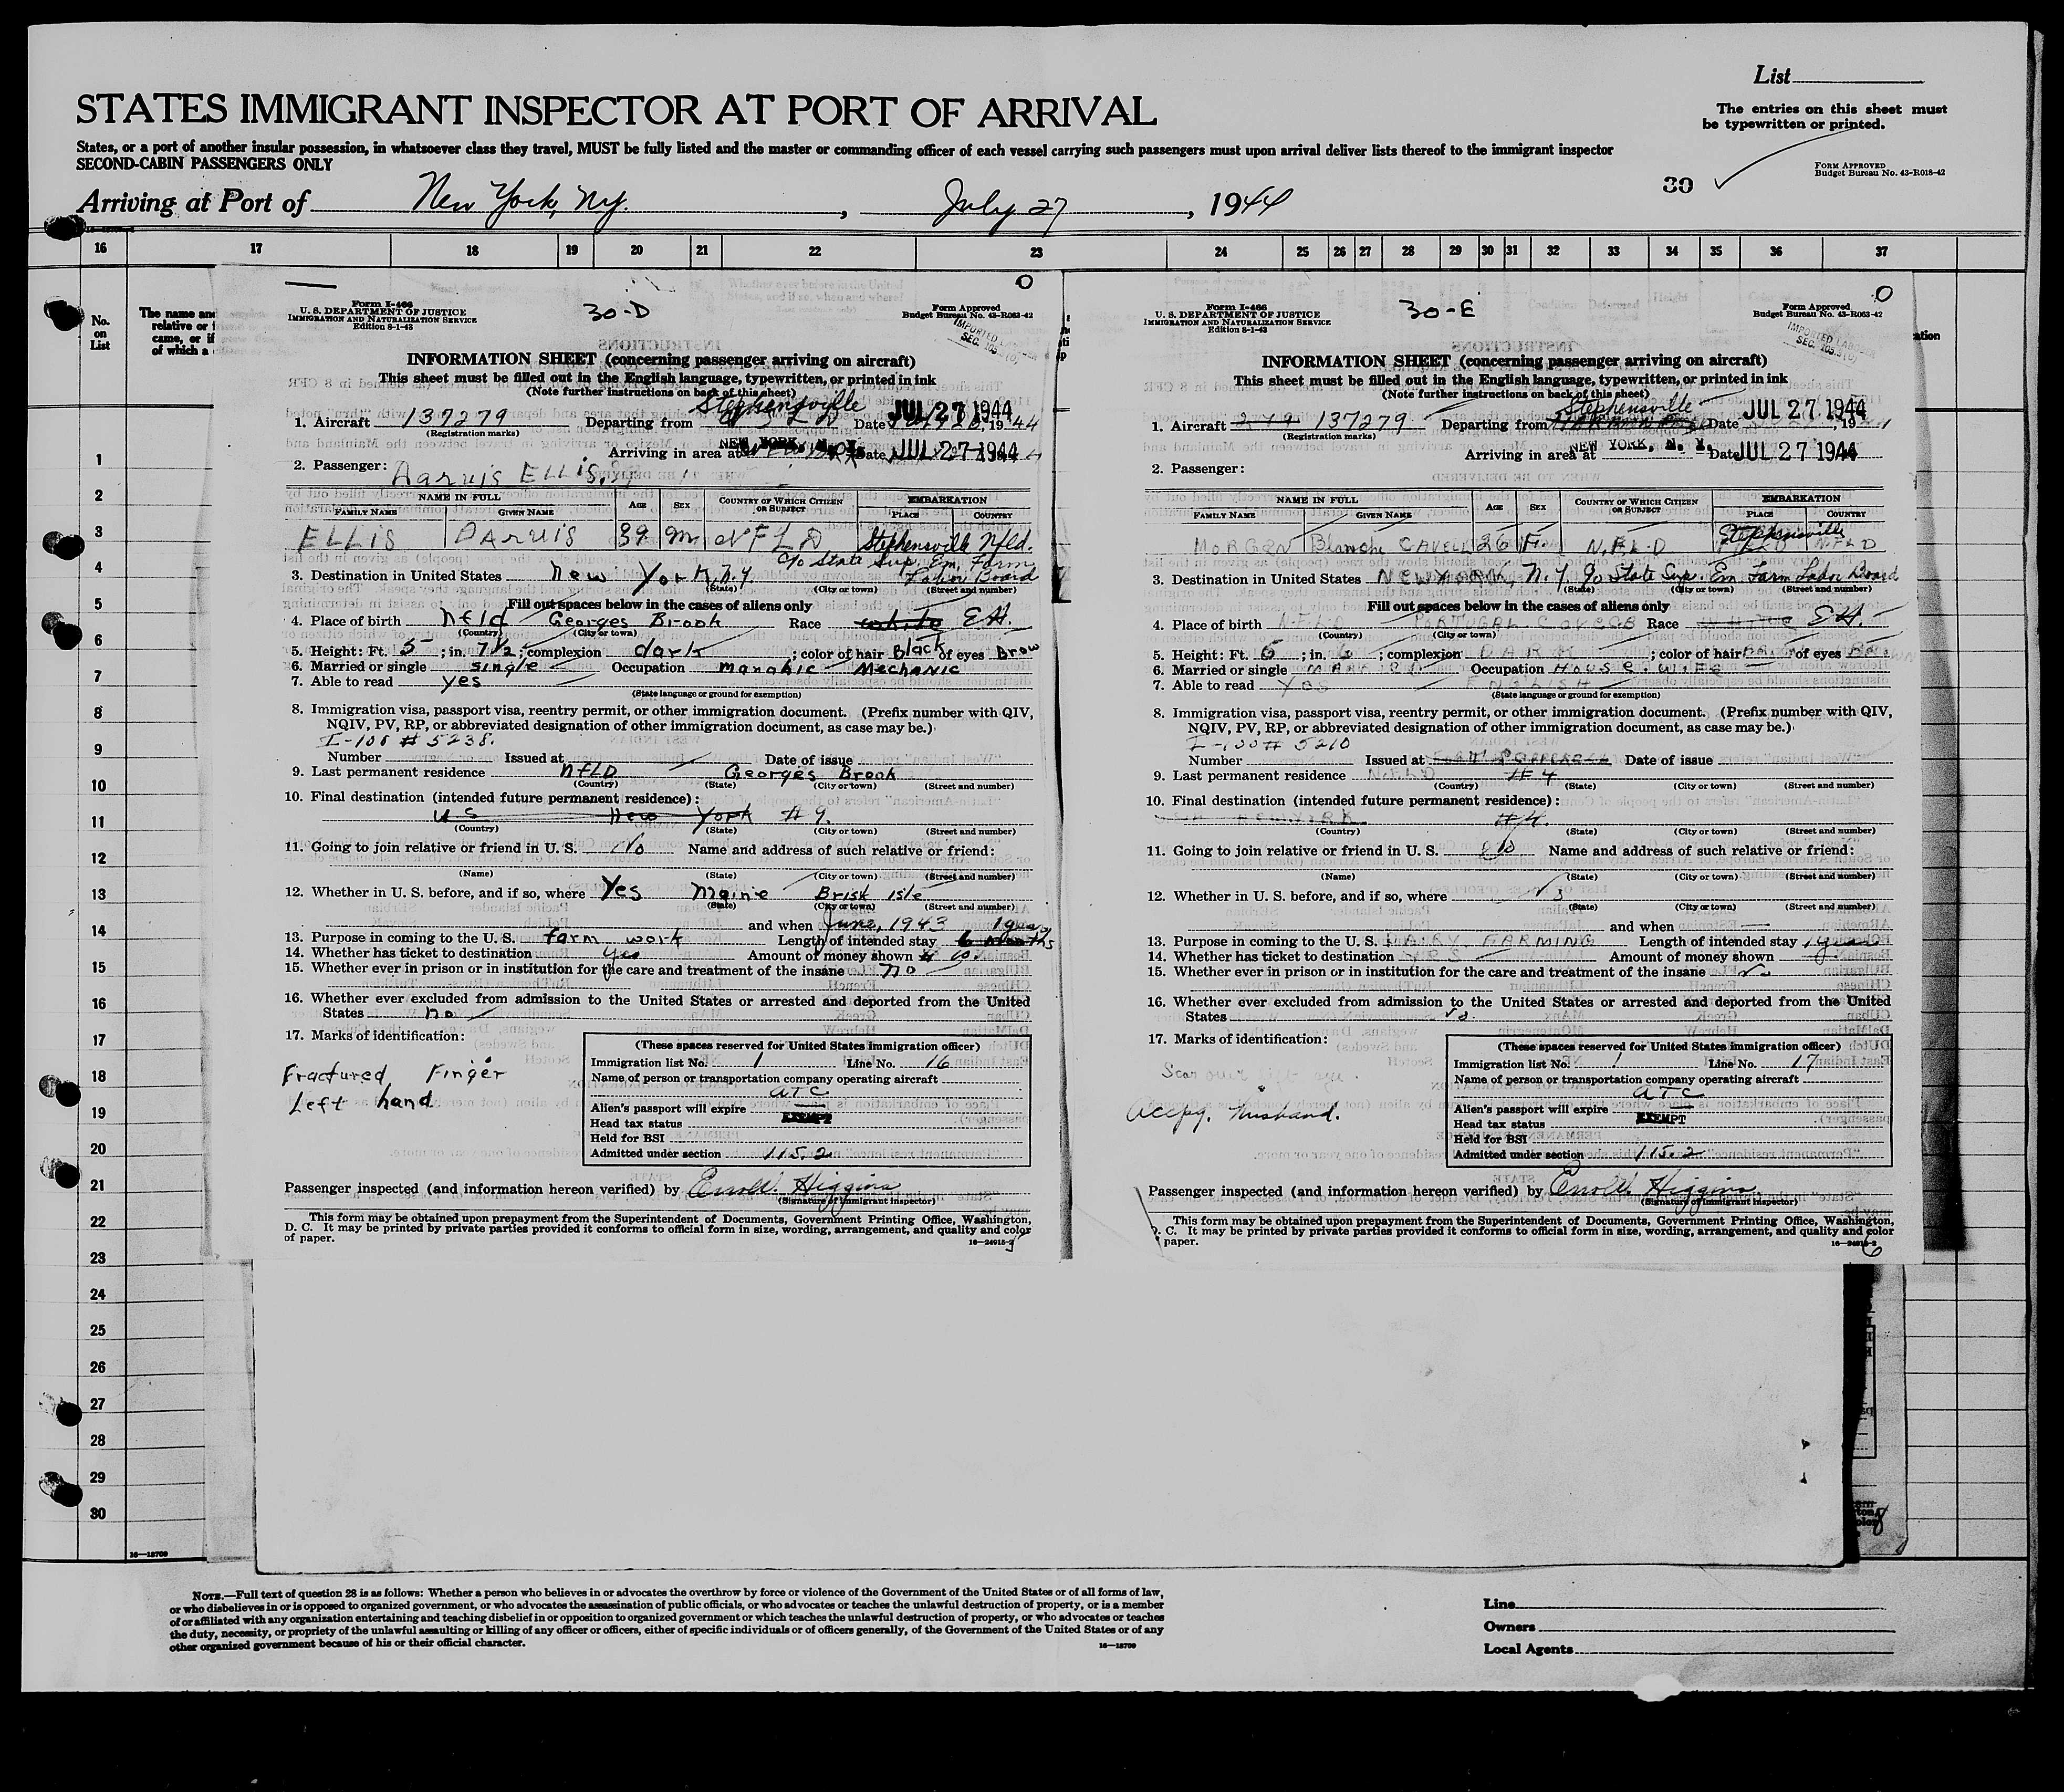 List
STATES IMMIGRANT INSPECTOR AT PORT OF ARRIVAL
The entries on this sheet must
be typewritten or printed.
States, or a port of another insular possession, in whatsoever class they travel, MUST be fully listed and the master or commanding officer of each vessel carrying such passengers must upon arrival deliver lists thereof to the immigrant inspector
SECOND-CABIN PASSENGERS ONLY
FORM APPROVED
Budget Bureau No. 43-R018-42
30
Arriving at Port of New York, N.Y., July 27, 1944
16 17 18 19 20 21 22 23 24 25 26 27 28 29 30 31 32 33 34 35 36 37
No.
on
List
The name and
relative or
came, or if
of which a
1
2
3
4
5
6
7
8
9
10
11
12
13
14
15
16
17
18
19
20
21
22
23
24
25
26
27
28
29
30
16—18709
Form I-466
U. S. DEPARTMENT OF JUSTICE
IMMIGRATION AND NATURALIZATION SERVICE
Edition 8-1-43
30-D
Form Approved
Budget Bureau No. 43-R063-42
IMPORTED LABORER
INFORMATION SHEET (concerning passenger arriving on aircraft)
This sheet must be filled out in the English language, typewritten, or printed in ink
(Note further instructions on back of this sheet)
1. Aircraft 137279 Departing from Stephensville Date JUL 27 1944
(Registration marks)
Arriving in area at NEW YORK, N. Y. Date JUL 27 1944
2. Passenger: Darvis ELLIS
NAME IN FULL AGE SEX COUNTRY OF WHICH CITIZEN OR SUBJECT EMBARKATION
FAMILY NAME GIVEN NAME PLACE COUNTRY
ELLIS DARVIS 39 M NFLD Stephensville Nfld.
c/o State Sup. Em. Farm
3. Destination in United States New York, N.Y Labor Board
(State) (City or town) (Street and number)
Fill out spaces below in the cases of aliens only
4. Place of birth Nfld Georges Brook Race white E.H.
(Country) (City or town)
5. Height: Ft. 5; in. 7 1/2; complexion dark; color of hair Black of eyes Brow
6. Married or single single Occupation Mechanic
7. Able to read yes
(State language or ground for exemption)
8. Immigration visa, passport visa, reentry permit, or other immigration document. (Prefix number with QIV,
NQIV, PV, RP, or abbreviated designation of other immigration document, as case may be.)
I-100 # 5238.
Number Issued at Date of issue
9. Last permanent residence NFLD Georges Brook
(Country) (State) (City or town) (Street and number)
10. Final destination (intended future permanent residence):
US New York # 9.
(Country) (State) (City or town) (Street and number)
11. Going to join relative or friend in U. S. No Name and address of such relative or friend:
(Name) (State) (City or town) (Street and number)
12. Whether in U. S. before, and if so, where Yes Maine Brisk Isle
(State) (City or town) (Street and number)
and when June, 1943
13. Purpose in coming to the U. S. farm work Length of intended stay 6 months
14. Whether has ticket to destination yes Amount of money shown
15. Whether ever in prison or in institution for the care and treatment of the insane no
16. Whether ever excluded from admission to the United States or arrested and deported from the United
States no
17. Marks of identification:
Fractured Finger
Left hand
(These spaces reserved for United States immigration officer)
Immigration list No. 1 Line No. 16
Name of person or transportation company operating aircraft
ATC
Alien's passport will expire
Head tax status EXEMPT
Held for BSI
Admitted under section 115.2
Passenger inspected (and information hereon verified) by Errol W. Higgins
(Signature of Immigrant Inspector)
This form may be obtained upon prepayment from the Superintendent of Documents, Government Printing Office, Washington,
D. C. It may be printed by private parties provided it conforms to official form in size, wording, arrangement, and quality and color
of paper.
16—24915-2
Form I-466
U. S. DEPARTMENT OF JUSTICE
IMMIGRATION AND NATURALIZATION SERVICE
Edition 8-1-43
30-E
Form Approved
Budget Bureau No. 43-R063-42
IMPORTED LABORER
INFORMATION SHEET (concerning passenger arriving on aircraft)
This sheet must be filled out in the English language, typewritten, or printed in ink
(Note further instructions on back of this sheet)
1. Aircraft 137279 Departing from Stephensville Date JUL 27 1944
(Registration marks)
Arriving in area at NEW YORK, N. Y. Date JUL 27 1944
2. Passenger:
NAME IN FULL AGE SEX COUNTRY OF WHICH CITIZEN OR SUBJECT EMBARKATION
FAMILY NAME GIVEN NAME PLACE COUNTRY
MORGEN Blanche CAVELL 26 F. N.F.L.D Stephensville N.F.L.D
3. Destination in United States NEW YORK, N.Y. c/o State Sup. Em. Farm Labor Board
(State) (City or town) (Street and number)
Fill out spaces below in the cases of aliens only
4. Place of birth N.F.L.D PORTUGAL COVE Race WHITE E.H.
(Country) (City or town)
5. Height: Ft. ; in. ; complexion DARK; color of hair of eyes
6. Married or single MARRIED Occupation HOUSE WIFE
7. Able to read YES ENGLISH
(State language or ground for exemption)
8. Immigration visa, passport visa, reentry permit, or other immigration document. (Prefix number with QIV,
NQIV, PV, RP, or abbreviated designation of other immigration document, as case may be.)
I-100 # 5210
Number Issued at Date of issue
9. Last permanent residence N.F.L.D # 4
(Country) (State) (City or town) (Street and number)
10. Final destination (intended future permanent residence):
NEW YORK #4.
(Country) (State) (City or town) (Street and number)
11. Going to join relative or friend in U. S. No Name and address of such relative or friend:
(Name) (State) (City or town) (Street and number)
12. Whether in U. S. before, and if so, where No
(State) (City or town) (Street and number)
and when
13. Purpose in coming to the U. S. DAIRY FARMING Length of intended stay 1 year
14. Whether has ticket to destination YES Amount of money shown
15. Whether ever in prison or in institution for the care and treatment of the insane No
16. Whether ever excluded from admission to the United States or arrested and deported from the United
States No.
17. Marks of identification:
Scar over left eye.
Accpg. husband.
(These spaces reserved for United States immigration officer)
Immigration list No. 1 Line No. 17
Name of person or transportation company operating aircraft
ATC
Alien's passport will expire
Head tax status EXEMPT
Held for BSI
Admitted under section 115.2
Passenger inspected (and information hereon verified) by Errol W. Higgins
(Signature of Immigrant Inspector)
This form may be obtained upon prepayment from the Superintendent of Documents, Government Printing Office, Washington,
D. C. It may be printed by private parties provided it conforms to official form in size, wording, arrangement, and quality and color
paper.
16—24915-2
NOTE.—Full text of question 28 is as follows: Whether a person who believes in or advocates the overthrow by force or violence of the Government of the United States or of all forms of law,
or who disbelieves in or is opposed to organized government, or who advocates the assassination of public officials, or who advocates or teaches the unlawful destruction of property, or is a member
of or affiliated with any organization entertaining and teaching disbelief in or opposition to organized government or which teaches the unlawful destruction of property, or who advocates or teaches
the duty, necessity, or propriety of the unlawful assaulting or killing of any officer or officers, either of specific individuals or of officers generally, of the Government of the United States or of any
other organized government because of his or their official character.
16—18709
Line
Owners
Local Agents